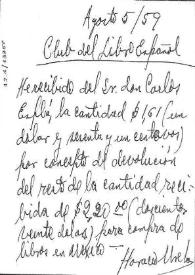 Agosto 5/59
Club del Libro Español
He recibido del Sr. don Carlos
la cantidad $1,61 (un
dolar y sesenta y un centavos)
por concepto de devolución
del resto de la cantidad reci-
bida de $220.00 (doscientos
veinte dolares) para compra de
libros en México
Horacio